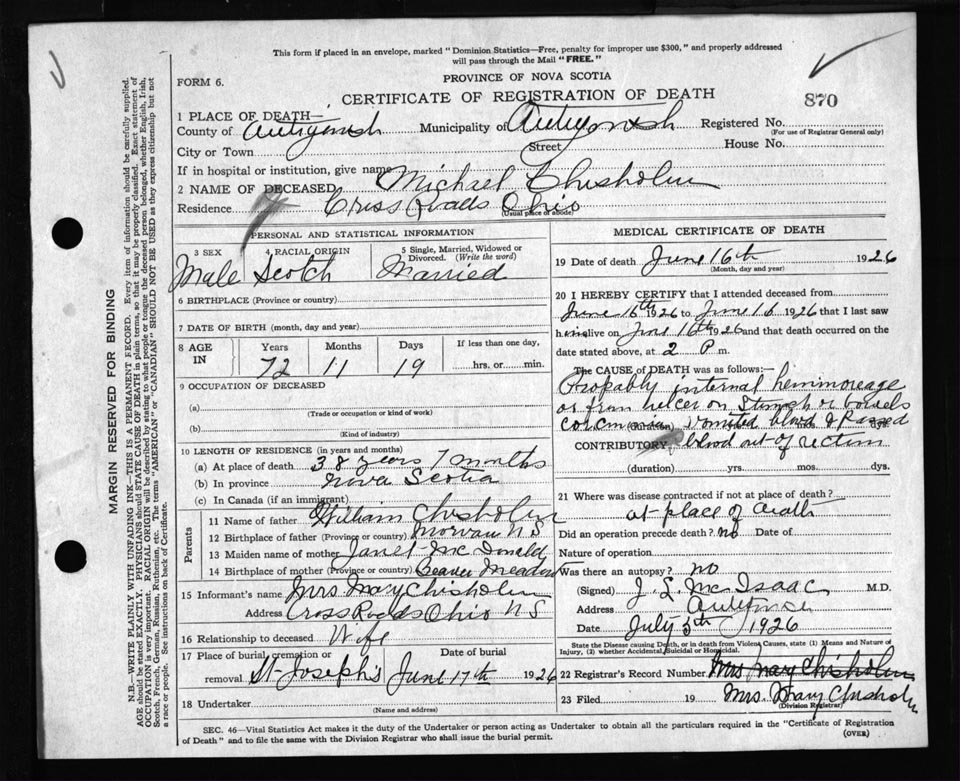 This form if placed in an envelope, marked " Dominion Statistics—Free, penalty for improper use $300," and properly addressed
will pass through the Mail "FREE."
FORM 6.
PROVINCE OF NOVA SCOTIA
CERTIFICATE OF REGISTRATION OF DEATH
870
1 PLACE OF DEATH—
County of Antigonish Municipality of Antigonish Registered No.
(For use of Registrar General only)
City or Town Street House No.
If in hospital or institution, give name
2 NAME OF DECEASED Michael Chisholm
Residence Cross Roads Ohio
(Usual place of abode)
PERSONAL AND STATISTICAL INFORMATION
3 SEX 4 RACIAL ORIGIN 5 Single, Married, Widowed or
Divorced. (Write the word)
Male Scotch Married
6 BIRTHPLACE (Province or country)
7 DATE OF BIRTH (month, day and year)
8 AGE IN Years Months Days If less than one day,
72 11 19 hrs. or min.
9 OCCUPATION OF DECEASED
(a)
(Trade or occupation or kind of work)
(b)
(Kind of industry)
10 LENGTH OF RESIDENCE (in years and months)
(a) At place of death 38 years 7 months
(b) In province Nova Scotia
(c) In Canada (if an immigrant)
Parents
11 Name of father William Chisholm
12 Birthplace of father (Province or country) Morvan N S
13 Maiden name of mother Janet Mc Donald
14 Birthplace of mother (Province or country) Beaver Meadow
15 Informant's name Mrs Mary Chisholm
Address Cross Roads Ohio N S
16 Relationship to deceased Wife
17 Place of burial, cremation or Date of burial
removal St Joseph's June 17th 1926
18 Undertaker
(Name and address)
MEDICAL CERTIFICATE OF DEATH
19 Date of death June 16th 1926
(Month, day and year)
20 I HEREBY CERTIFY that I attended deceased from
June 16th 1926 to June 16 1926 that I last saw
him alive on June 16th 1926 and that death occurred on
date stated above, at 2 P m.
The CAUSE of DEATH was as follows:—
Propably internal hemmoreage
or from ulcer on Stomach or bowels
vomited blood & Passed
CONTRIBUTORY blood out of rectum
(duration) yrs. mos. dys.
21 Where was disease contracted if not at place of death?
at place of death
Did an operation precede death? No Date of
Nature of operation
Was there an autopsy? no
(Signed) J. L. McIsaac M.D.
Address Antigonish
Date July 5th 1926
State the Disease causing Death, or in death from Violent Causes, state (1) Means and Nature of
Injury, (2) whether Accidental, Suicidal or Homicidal.
22 Registrar's Record Number Mrs Mary Chisholm
23 Filed 19 Mrs. Mary Chisholm
(Division Registrar)
SEC. 46—Vital Statistics Act makes it the duty of the Undertaker or person acting as Undertaker to obtain all the particulars required in the "Certificate of Registration
of Death" and to file the same with the Division Registrar who shall issue the burial permit.
(OVER)
MARGIN RESERVED FOR BINDING
N.B.—WRITE PLAINLY WITH UNFADING INK—THIS IS A PERMANENT RECORD. Every item of information should be carefully supplied.
AGE should be stated EXACTLY. PHYSICIANS should STATE CAUSE OF DEATH in plain terms, so that it may be properly classified. Exact statement of
OCCUPATION is very important. RACIAL ORIGIN will be described by stating to what people or tongue the deceased person belonged, whether English, Irish,
Scotch, French, German, Russian, Ruthenian, etc. The terms "AMERICAN" or "CANADIAN" SHOULD NOT BE USED as they express citizenship but not
a race or people. See instructions on back of Certificate.